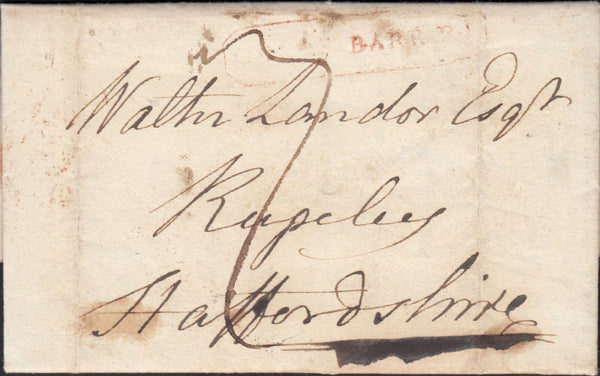 Walter Landor Esqr
Rugeley
Staffordshire